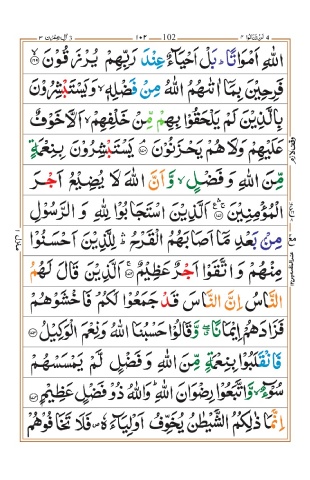 102
اللّٰهِ اَمْوَاتًا ؕ بَلْ اَحْيَآءٌ عِنْدَ رَبِّهِمْ يُرْزَقُوْنَ ۙ
فَرِحِيْنَ بِمَاۤ اٰتٰٮهُمُ اللّٰهُ مِنْ فَضْلِهٖ ۙ وَيَسْتَبْشِرُوْنَ
بِالَّذِيْنَ لَمْ يَلْحَقُوْا بِهِمْ مِّنْ خَلْفِهِمْ ۙ اَلَّا خَوْفٌ
عَلَيْهِمْ وَلَا هُمْ يَحْزَنُوْنَ ۘ يَسْتَبْشِرُوْنَ بِنِعْمَةٍ
مِّنَ اللّٰهِ وَفَضْلٍ ۙ وَّاَنَّ اللّٰهَ لَا يُضِيْعُ اَجْرَ
الْمُؤْمِنِيْنَ ۛۚ اَلَّذِيْنَ اسْتَجَابُوْا لِلّٰهِ وَالرَّسُوْلِ
مِنْۢ بَعْدِ مَاۤ اَصَابَهُمُ الْقَرْحُ ۛؕ لِلَّذِيْنَ اَحْسَنُوْا
مِنْهُمْ وَاتَّقَوْا اَجْرٌ عَظِيْمٌ ۚ اَلَّذِيْنَ قَالَ لَهُمُ
النَّاسُ اِنَّ النَّاسَ قَدْ جَمَعُوْا لَكُمْ فَاخْشَوْهُمْ
فَزَادَهُمْ اِيْمَانًا ۖۗ وَّقَالُوْا حَسْبُنَا اللّٰهُ وَنِعْمَ الْوَكِيْلُ
فَانْقَلَبُوْا بِنِعْمَةٍ مِّنَ اللّٰهِ وَفَضْلٍ لَّمْ يَمْسَسْهُمْ
سُوْٓءٌ ۙ وَّاتَّبَعُوْا رِضْوَانَ اللّٰهِ ؕ وَاللّٰهُ ذُوْ فَضْلٍ عَظِيْمٍ
اِنَّمَا ذٰلِكُمُ الشَّيْطٰنُ يُخَوِّفُ اَوْلِيَآءَهٗ ۪ فَلَا تَخَافُوْهُمْ